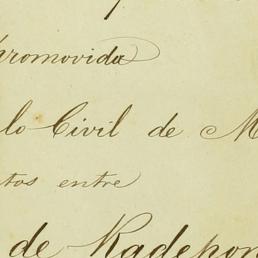 promovida
lo Civil de M
tos entre
de Kadepon